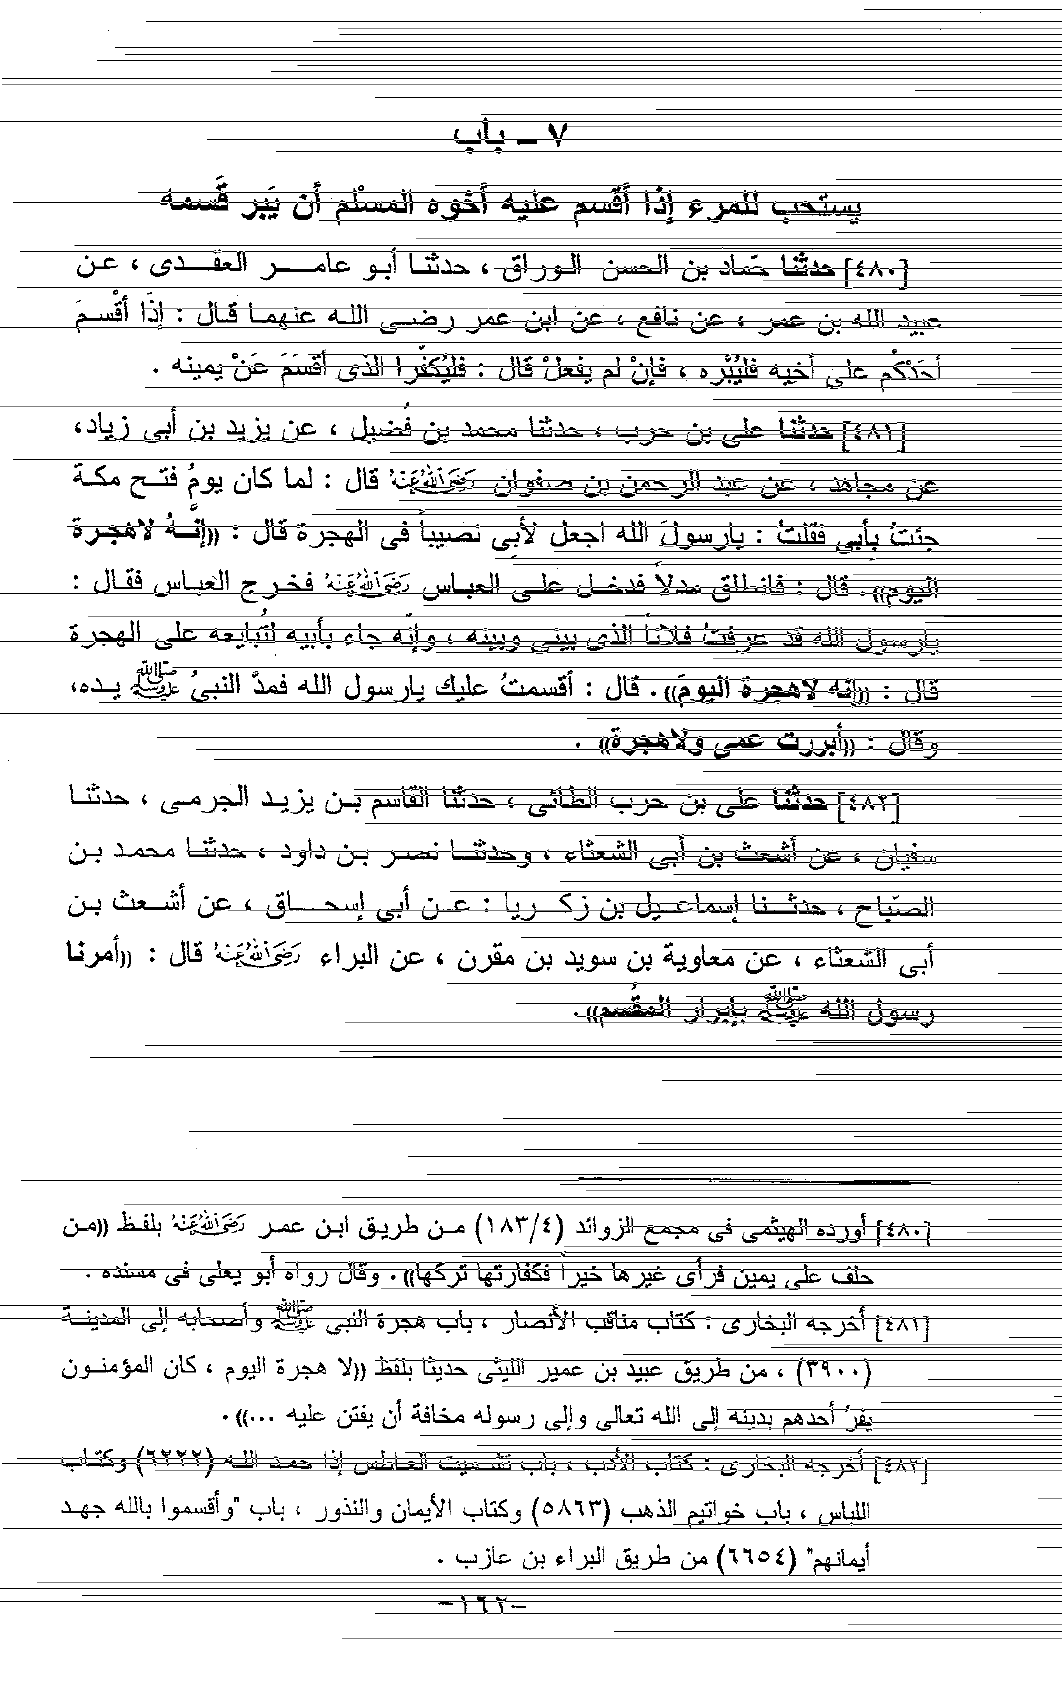 ٧ – باب
يستحب للمرء إذا أقسم عليه أخوه المسلم أن يَبر قَسمه
[٤٨٠] حدثنا حمّاد بن الحسن الوراق ، حدثنا أبو عامر العقدى ، عن
عبيد الله بن عمر ، عن نافع ، عن ابن عمر رضى الله عنهما قال : إذَا أقْسمَ
أحَدَكُم على أخيه فليُبْره ، فإنْ لم يفعلْ قال : فليُكفّرا الذى أقسَمَ عَنْ يمينه .
[٤٨١] حدثنا على بن حرب ، حدثنا محمد بن فُضيل ، عن يزيد بن أبى زياد،
عن مجاهد ، عن عبد الرحمن بن صفوان رَضِىَ اللهُ عَنْهُ قال : لما كان يومُ فتح مكة
جئتُ بأبي فقلتُ : يارسولَ الله اجعل لأبِى نصيباً فى الهجرة قال : ((إنَّهُ لاهجرة
اليوم)). قال : فانطلق مدلاً فدخل على العباس رَضِىَ اللهُ عَنْهُ فخرج العباس فقال :
يارسول الله قد عرفتُ فلاناً الذى بيني وبينه ، وإنّه جاء بأبيه لتُبايعه على الهجرة
قال : ((إنه لاهجرة اليومَ)). قال : أقسمتُ عليك يارسول الله فمدَّ النبىُ ﷺ يده،
وقال : ((أبررت عمى ولاهجرة)) .
[٤٨٢] حدثنا على بن حرب الطائى ، حدثنا القاسم بن يزيد الجرمى ، حدثنا
سفيان ، عن أشعث بن أبى الشعثاء ، وحدثنا نصر بن داود ، حدثنا محمد بن
الصبّاح ، حدثنا إسماعيل بن زكريا : عن أبى إسحاق ، عن أشعث بن
أبى الشعثاء ، عن معاوية بن سويد بن مقرن ، عن البراء رَضِىَ اللهُ عَنْهُ قال : ((أمرنا
رسول الله ﷺ بإبرار المقُسم)).
[٤٨٠] أورده الهيثمى فى مجمع الزوائد (١٨٣/٤) من طريق ابن عمر رَضِىَ اللهُ عَنْهُ بلفظ ((من
حلف على يمين فرأى غيرها خيراً فكفارتها تركها)). وقال رواه أبو يعلى فى مسنده .
[٤٨١] أخرجه البخارى : كتاب مناقب الأنصار ، باب هجرة النبى ﷺ وأصحابه إلى المدينة
(٣٩٠٠) ، من طريق عبيد بن عمير الليثى حديثا بلفظ ((لا هجرة اليوم ، كان المؤمنون
يفرُ أحدهم بدينه إلى الله تعالى وإلى رسوله مخافة أن يفتن عليه ...)).
[٤٨٢] أخرجه البخارى : كتاب الأدب ، باب تشميت العاطس إذا حمد الله (٦٢٢٢) وكتاب
اللباس ، باب خواتيم الذهب (٥٨٦٣) وكتاب الأيمان والنذور ، باب "وأقسموا بالله جهد
أيمانهم" (٦٦٥٤) من طريق البراء بن عازب .
-١٦٢-